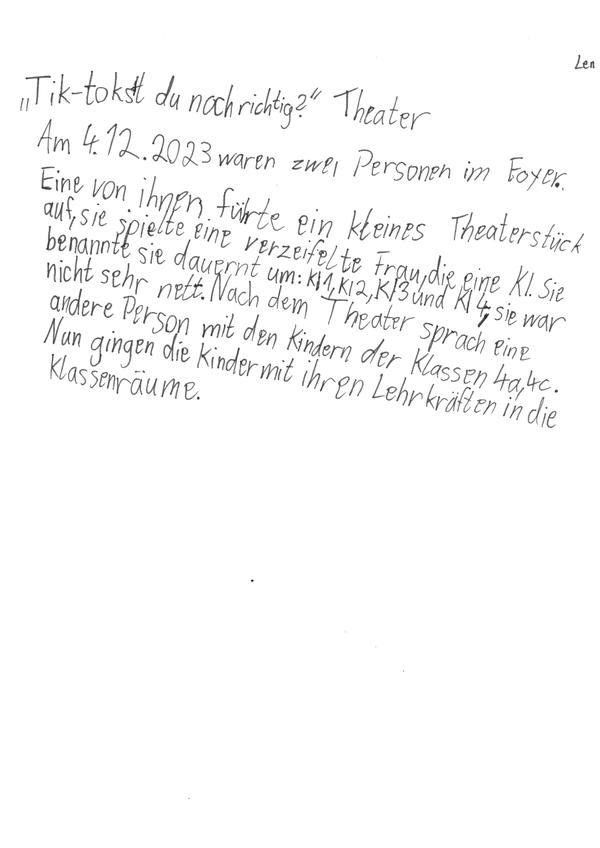 Len
„Tik-tokst du noch richtig?“ Theater
Am 4.12.2023 waren zwei Personen im Foyer.
Eine von ihnen führte ein kleines Theaterstück
auf, sie spielte eine verzeifelte Frau, die eine KI. Sie
benannte sie dauernt um: KI1, KI2, KI3 und KI4, sie war
nicht sehr nett. Nach dem Theater sprach eine
andere Person mit den Kindern der Klassen 4a, 4c.
Nun gingen die Kinder mit ihren Lehrkräften in die
Klassenräume.